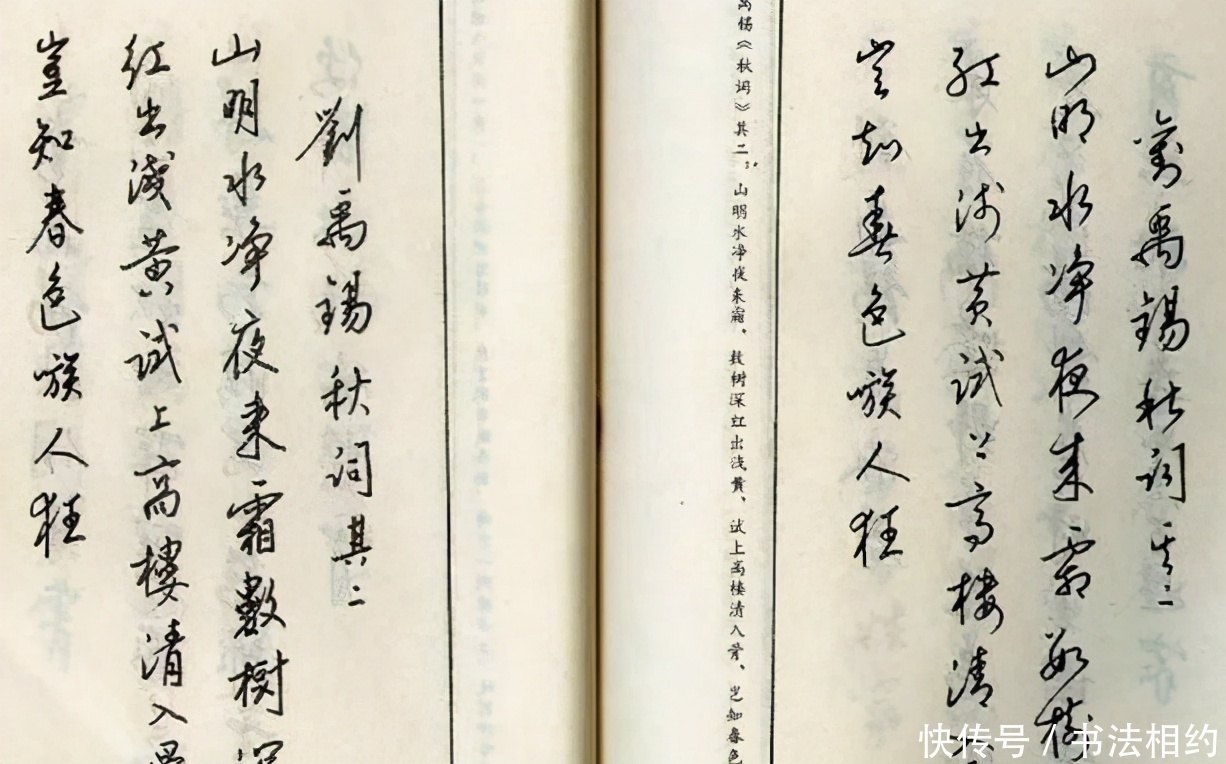 劉禹锡秋词其二
山明水净夜来霜數樹
红出浅黄试上高楼清
岂知春色嗾人狂
禹锡《秋词》其二。山明水净夜来霜、数树深红出浅黄、试上高楼清入骨、岂知春色
劉禹锡秋词其二
山明水净夜来霜數樹深
红出淺黄试上高樓清入骨
豈知春色嗾人狂
快传号 / 书法相约